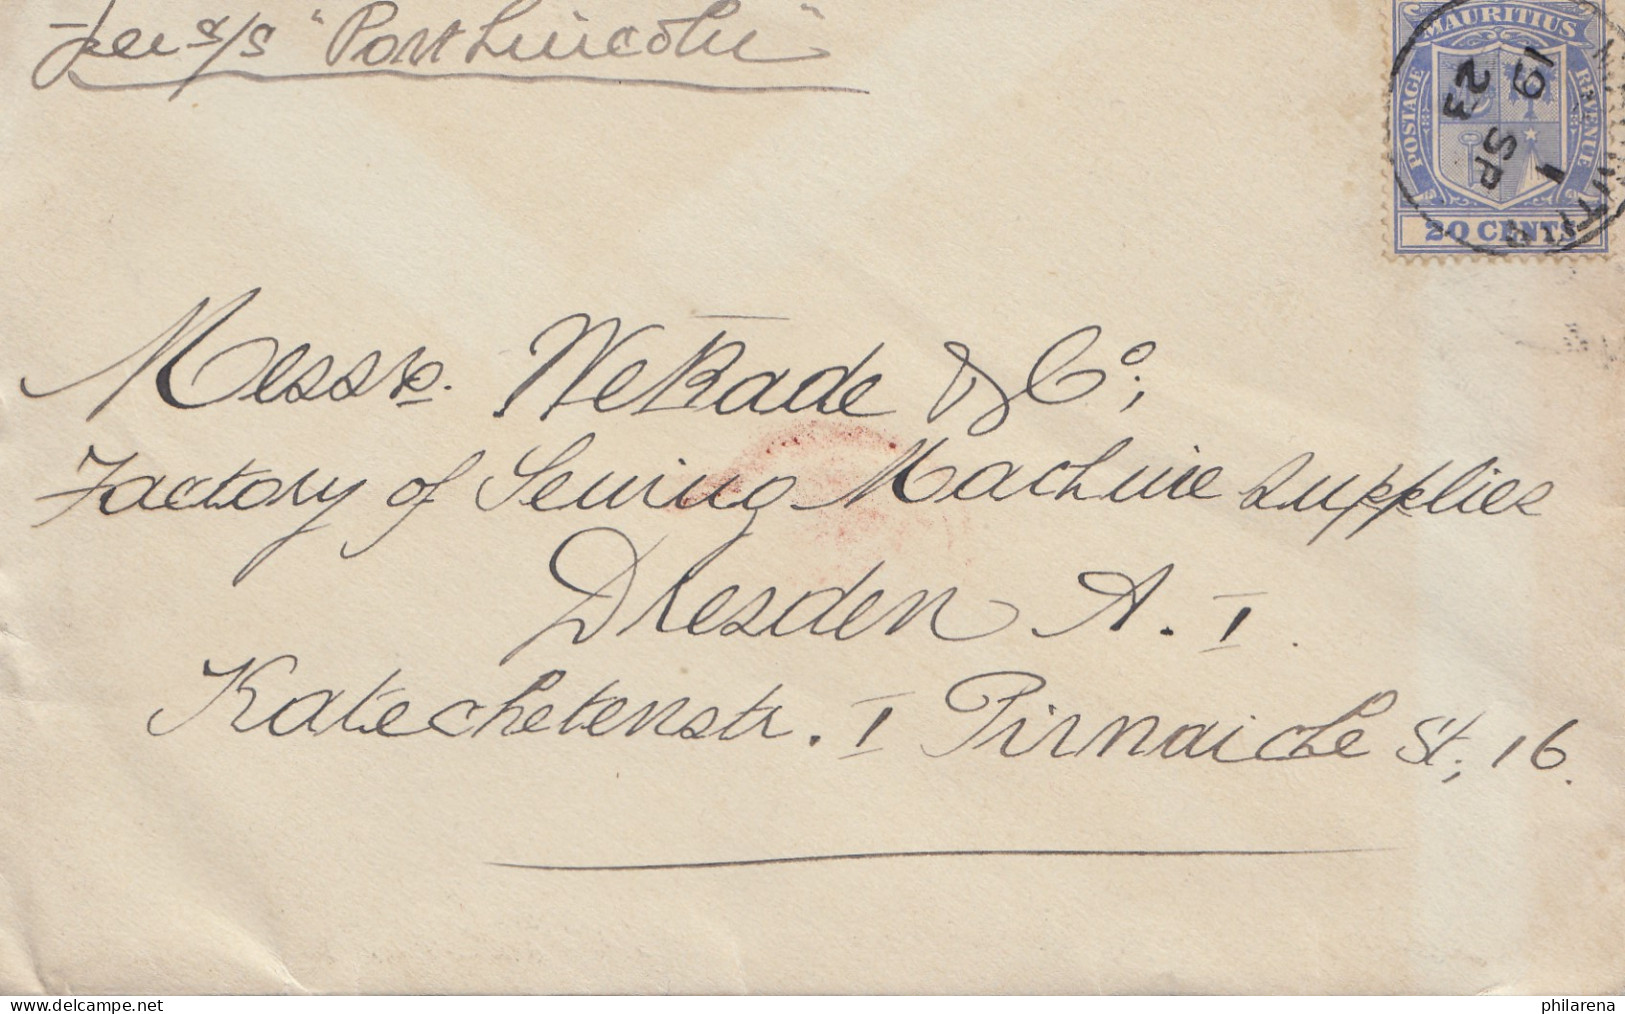 Per s/s "Port Lincoln"
MAURITIUS
POSTAGE
REVENUE
20 CENTS
19
SP
23
Messrs. WeKade & Co;
Factory of Sewing Machine Supplies
Dresden A. I.
Katechetenstr. I Pirnaiche St; 16.
delcampe.net
philarena